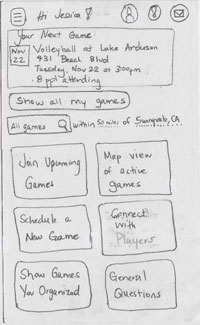 Hi Jessica
Your Next Game
Nov
22
Volleyball at Lake Anderson
431 Beach Blvd
Tuesday, Nov 22 at 3:00pm
8 ppl attending
Show all my games
All games
within 50 miles of Sunnyvale, CA
Join Upcoming
Games
Map view
of active
games
Schedule a
New Game
Connect
with
Players
Show Games
You Organized
General
Questions